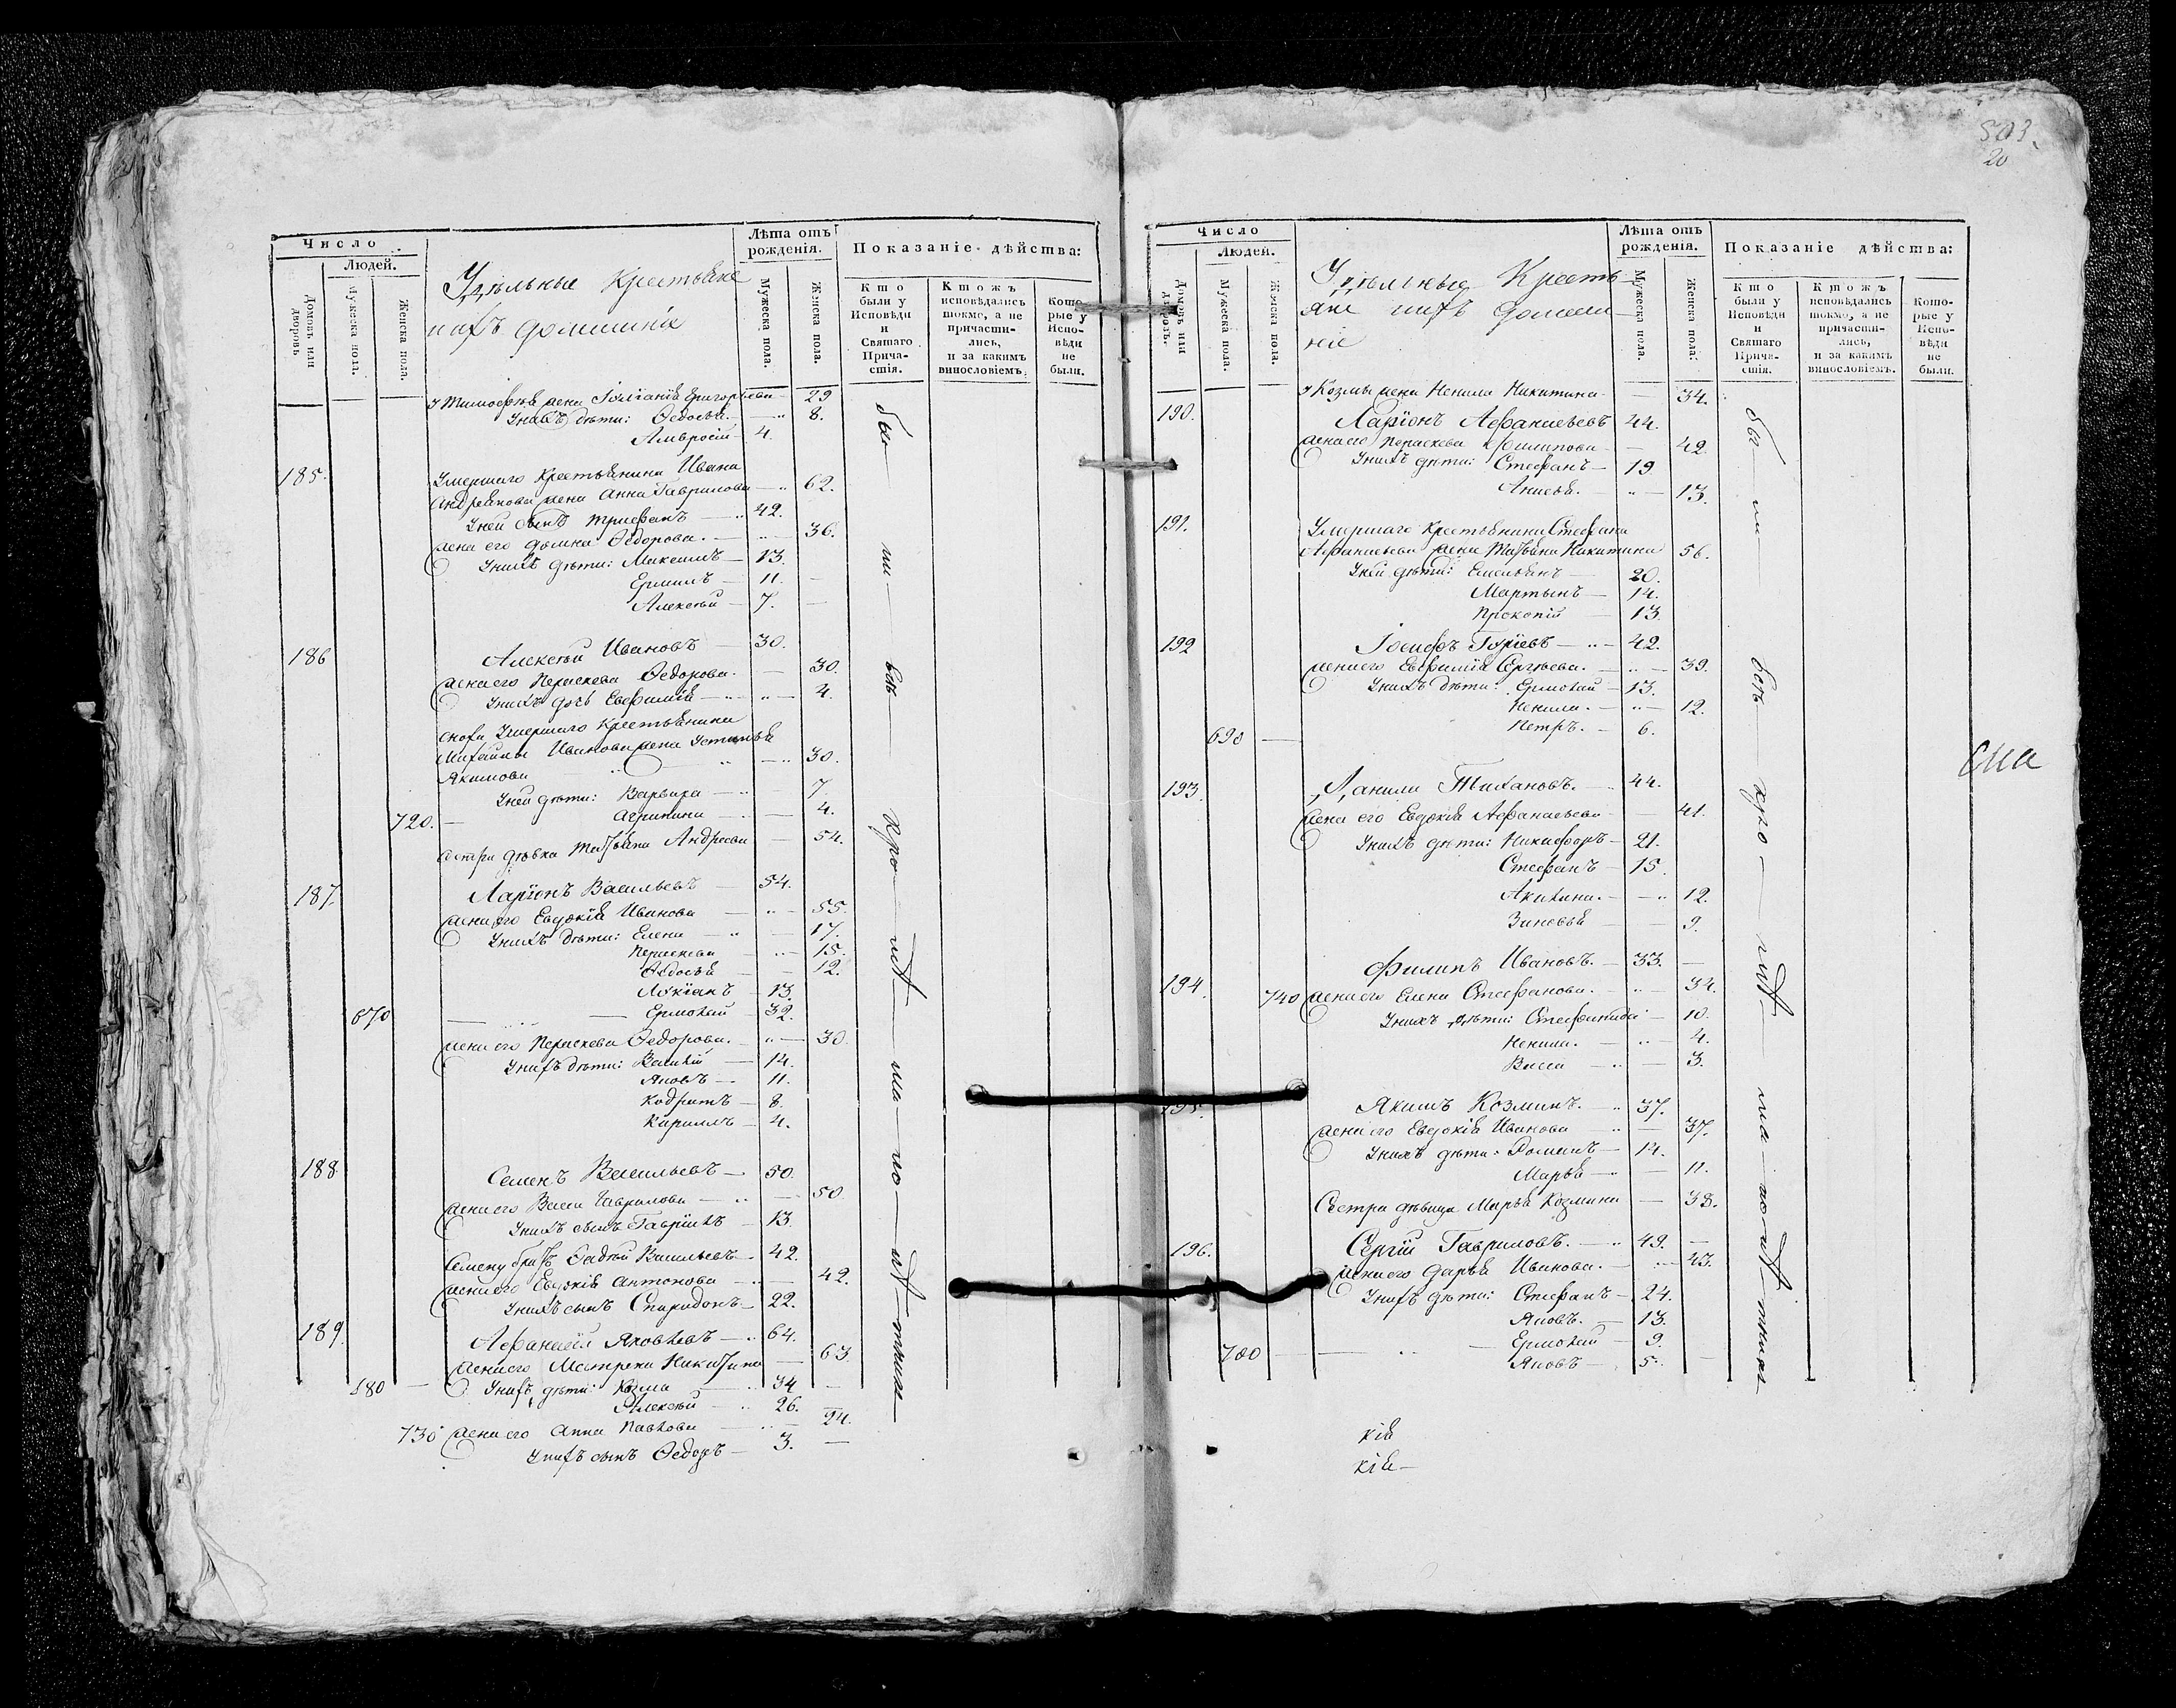 503.
20
Число
Людей.
Домовъ или дворовъ
Мужеска пола.
Женска пола.
Удѣльные Крестьяне
ихъ домашнія
Лѣта отъ рожденія.
Мужеска пола.
Женска пола.
Показаніе дѣйства:
Кто были у Исповѣди и Святаго Причастія.
Ктожъ исповѣдались токмо, а не причастились, и за какимъ винословіемъ.
Которые у Исповѣди не были.
У Тимофѣя жена Григорьева — 29
У нихъ дѣти: Ѳедосья — 8.
Амвросій — 4.
185. Умершаго Крестьянина Ивана
Андреянова жена Анна Гаврилова — 62.
У ней сынъ Трифанъ — 42.
жена его Домна Ѳедорова. — 36.
У нихъ дѣти: Максимъ — 13.
Ермилъ — 11.
Алексѣй — 7.
186 Алексѣй Ивановъ — 30.
жена его Параскева Ѳедорова. — 30.
У нихъ дочь Евфимія — 4.
сноха Умершаго Крестьянина
Михайлы Иванова жена Устинья
Якимова — 30.
У ней дѣти: Варвара — 7.
720. Агрипина — 4.
сестра дѣвка Татьяна Андреева — 54.
187. Ларіонъ Васильевъ — 54.
жена его Евдокія Иванова — 55.
У нихъ дѣти: Елена — 17.
Параскева — 15.
Ѳедосья — 12.
Лукіанъ — 13.
670 Ермолай — 32.
жена его Параскева Ѳедорова. — 30.
У нихъ дѣти: Василій — 14.
Яковъ — 11.
Кодратъ — 8.
Кирилъ — 4.
188 Семенъ Васильевъ — 50.
жена его Васса Гаврилова — 50.
У нихъ сынъ Гавріилъ — 13.
Семену братъ Фадѣй Васильевъ — 42.
жена его Евдокія Антонова — 42.
У нихъ сынъ Спиридонъ — 22.
189. Афанасій Яковлевъ — 64.
жена его Матрена Никитина — 63.
680 У нихъ дѣти: Козма — 34
Алексѣй — 26.
730 жена его Анна Павлова — 24.
У нихъ сынъ Ѳедоръ — 3.
бы — ли — всѣ
Число
Людей.
Домовъ или дворовъ.
Мужеска пола.
Женска пола.
Удѣльные Кресть-
яне ихъ домаш-
ніе
Лѣта отъ рожденія.
Мужеска пола.
Женска пола.
Показаніе дѣйства:
Кто были у Исповѣди и Святаго Причастія.
Ктожъ исповѣдались токмо, а не причастились, и за какимъ винословіемъ.
Которые у Исповѣди не были.
У Козмы жена Ненила Никитина — 34.
190. Ларіонъ Афанасьевъ 44.
жена его Параскева Филипова — 42.
У нихъ дѣти: Стефанъ — 19
Анисья. — 13.
191. Умершаго Крестьянина Стефана
Афанасьева жена Татьяна Никитина 56.
У ней дѣти: Емельянъ — 20.
Мартынъ — 14.
Прокопій — 13.
192 Іосифъ Гуріевъ — 42.
жена его Евфимія Сергѣева. — 39.
У нихъ дѣти: Ермолай — 13.
Ненила. — 12.
690 Петръ. — 6.
193. Данила Тихановъ. — 44.
жена его Евдокія Афанасьева — 41.
У нихъ дѣти: Никифоръ — 21.
Стефанъ — 15.
Акилина. — 12.
Зиновья — 9.
194. Филипъ Ивановъ. — 33.
740 жена его Елена Стефанова. — 34.
У нихъ дѣти: Стефанида — 10.
Ненила. — 4.
Васса — 3.
195. Якимъ Козминъ. — 37.
жена его Евдокія Иванова — 37.
У нихъ дѣти: Романъ — 14.
Марья — 11.
Сестра дѣвица Марья Козмина — 38.
196. Сергій Гавриловъ. — 49.
жена его Дарья Иванова. — 43.
У нихъ дѣти: Стефанъ — 24.
Яковъ. — 13.
700 Ермолай — 9.
Яковъ — 5.
бы — ли — всѣ
кія
кія —